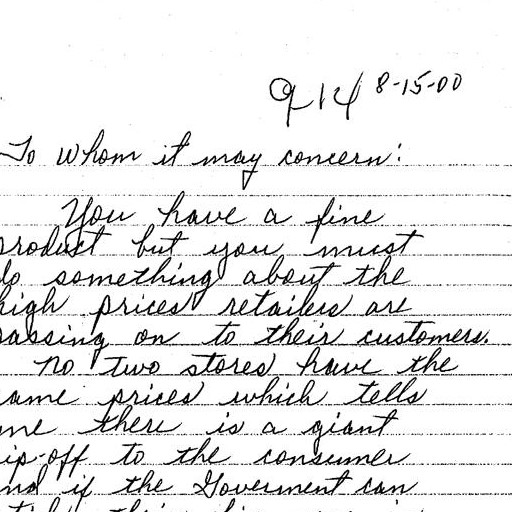 914 8-15-00
To whom it may concern:
You have a fine
product but you must
do something about the
high prices retailers are
passing on to their customers.
No two stores have the
same prices which tells
me there is a giant
rip-off to the consumer
and if the Goverment can